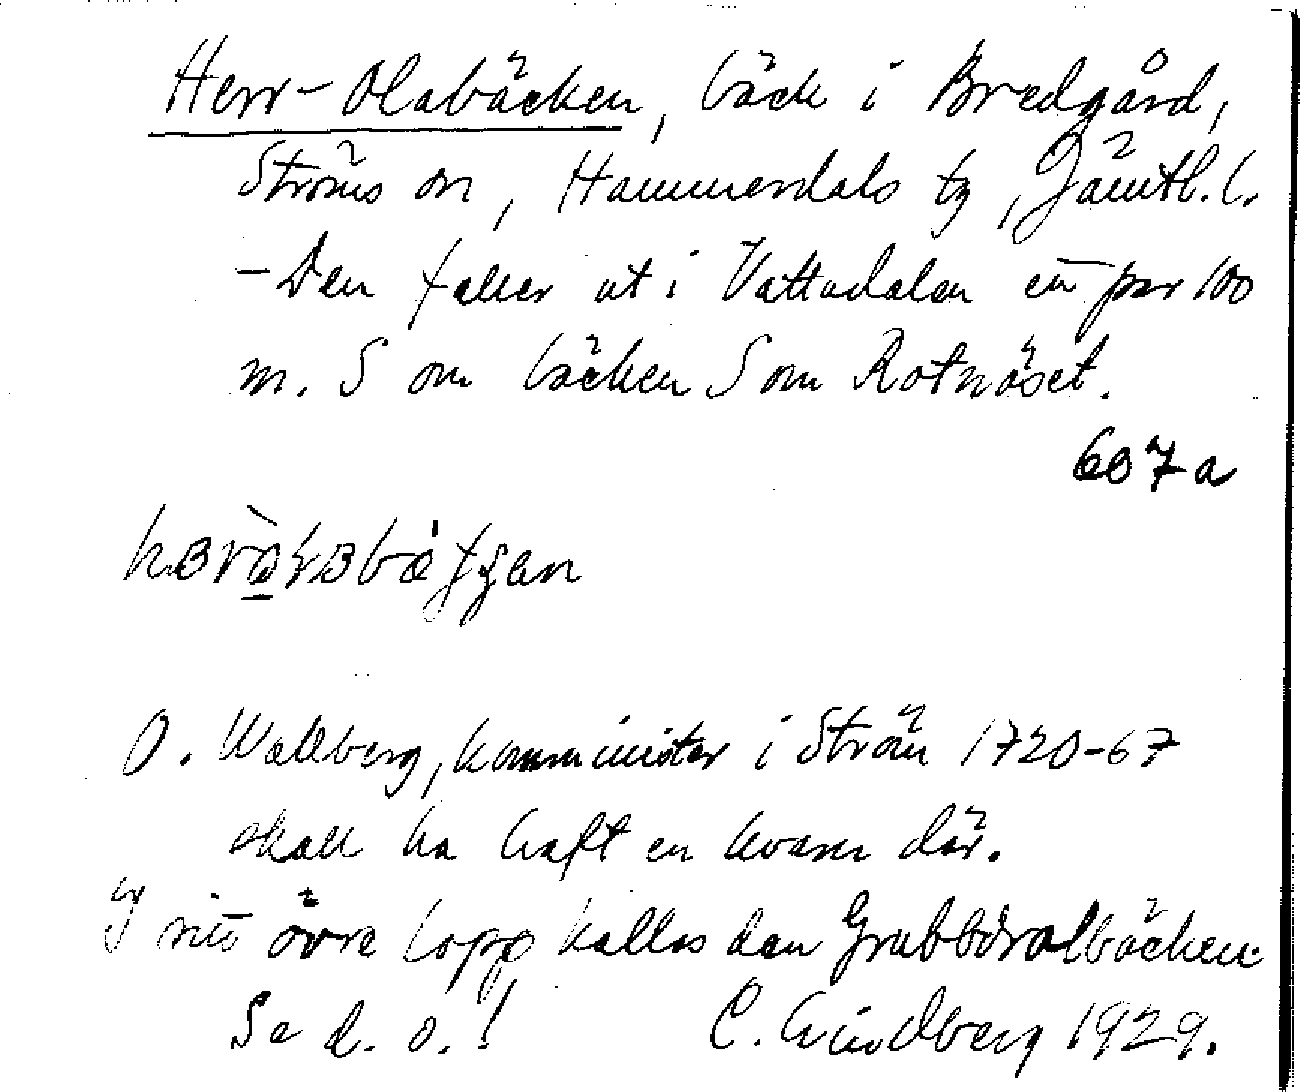 Herr-Olabäcken, bäck i Bredgård,
Ströms sn, Hammerdals tg, Jämtl. l.
- Den faller ut i Vattudalen ett par 100
m. S om bäcken S om Rotnäset.
607 a
O. Wallberg, komminister i Ström 1720-67
skall ha haft en kvarn där.
I sitt övre lopp kallas den Grubbdalbäcken.
Se d. o.! C. Lindberg 1929.